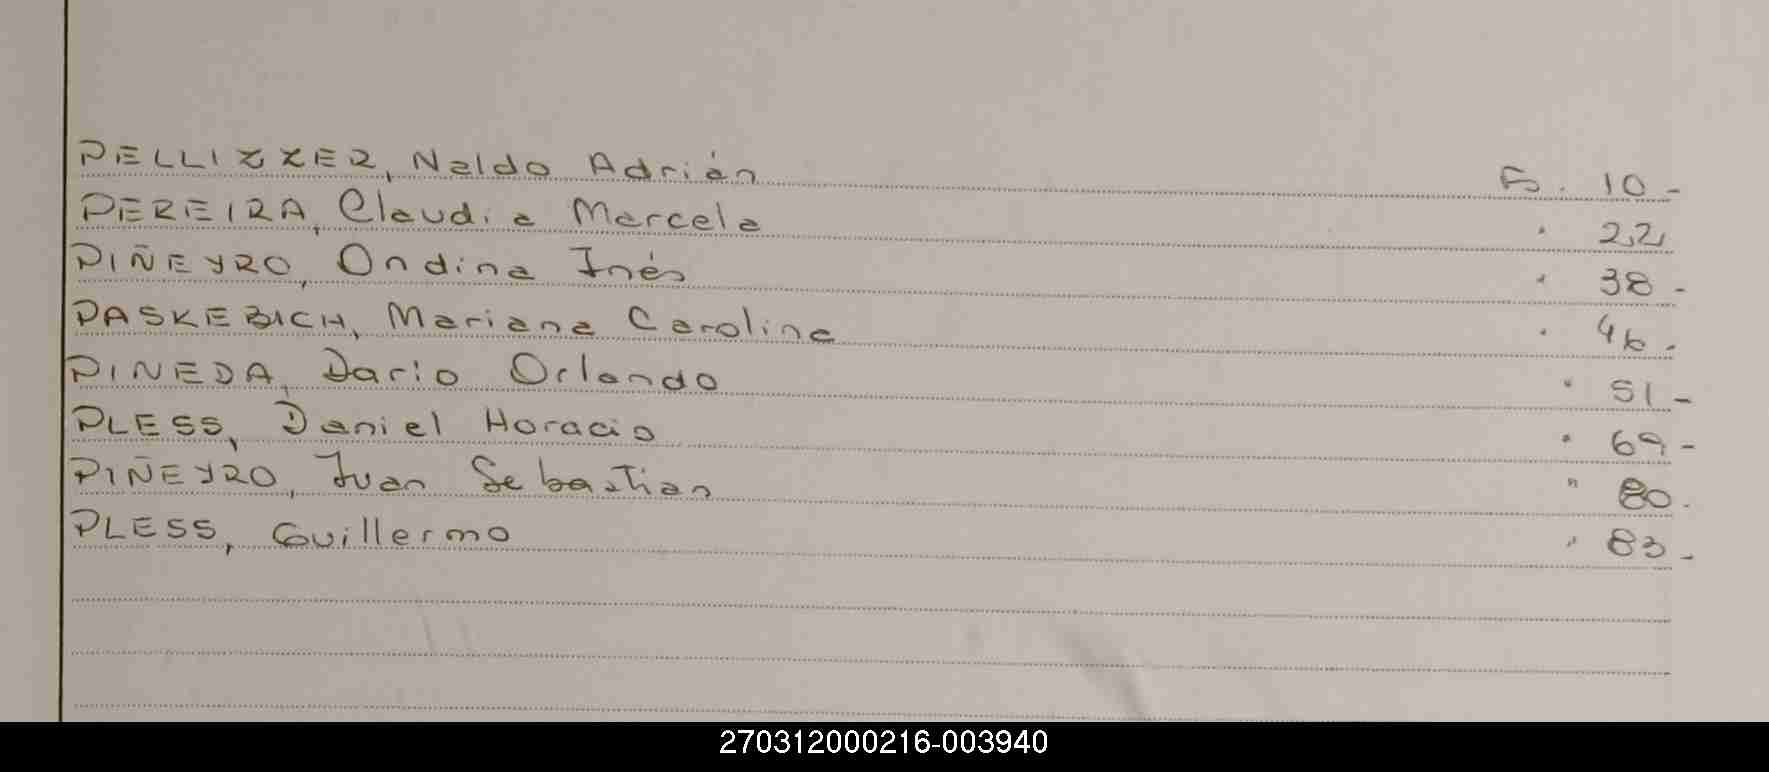 PELLIZZER, Naldo Adrián F. 10-
PEREIRA, Claudia Marcela " 22,
PIÑEYRO, Ondina Inés " 38-
PASKEBICH, Mariana Carolina " 46.
PINEDA, Dario Orlando " 51-
PLESS, Daniel Horacio " 69-
PIÑEYRO, Juan Sebastian " 80.
PLESS, Guillermo " 83-
270312000216-003940